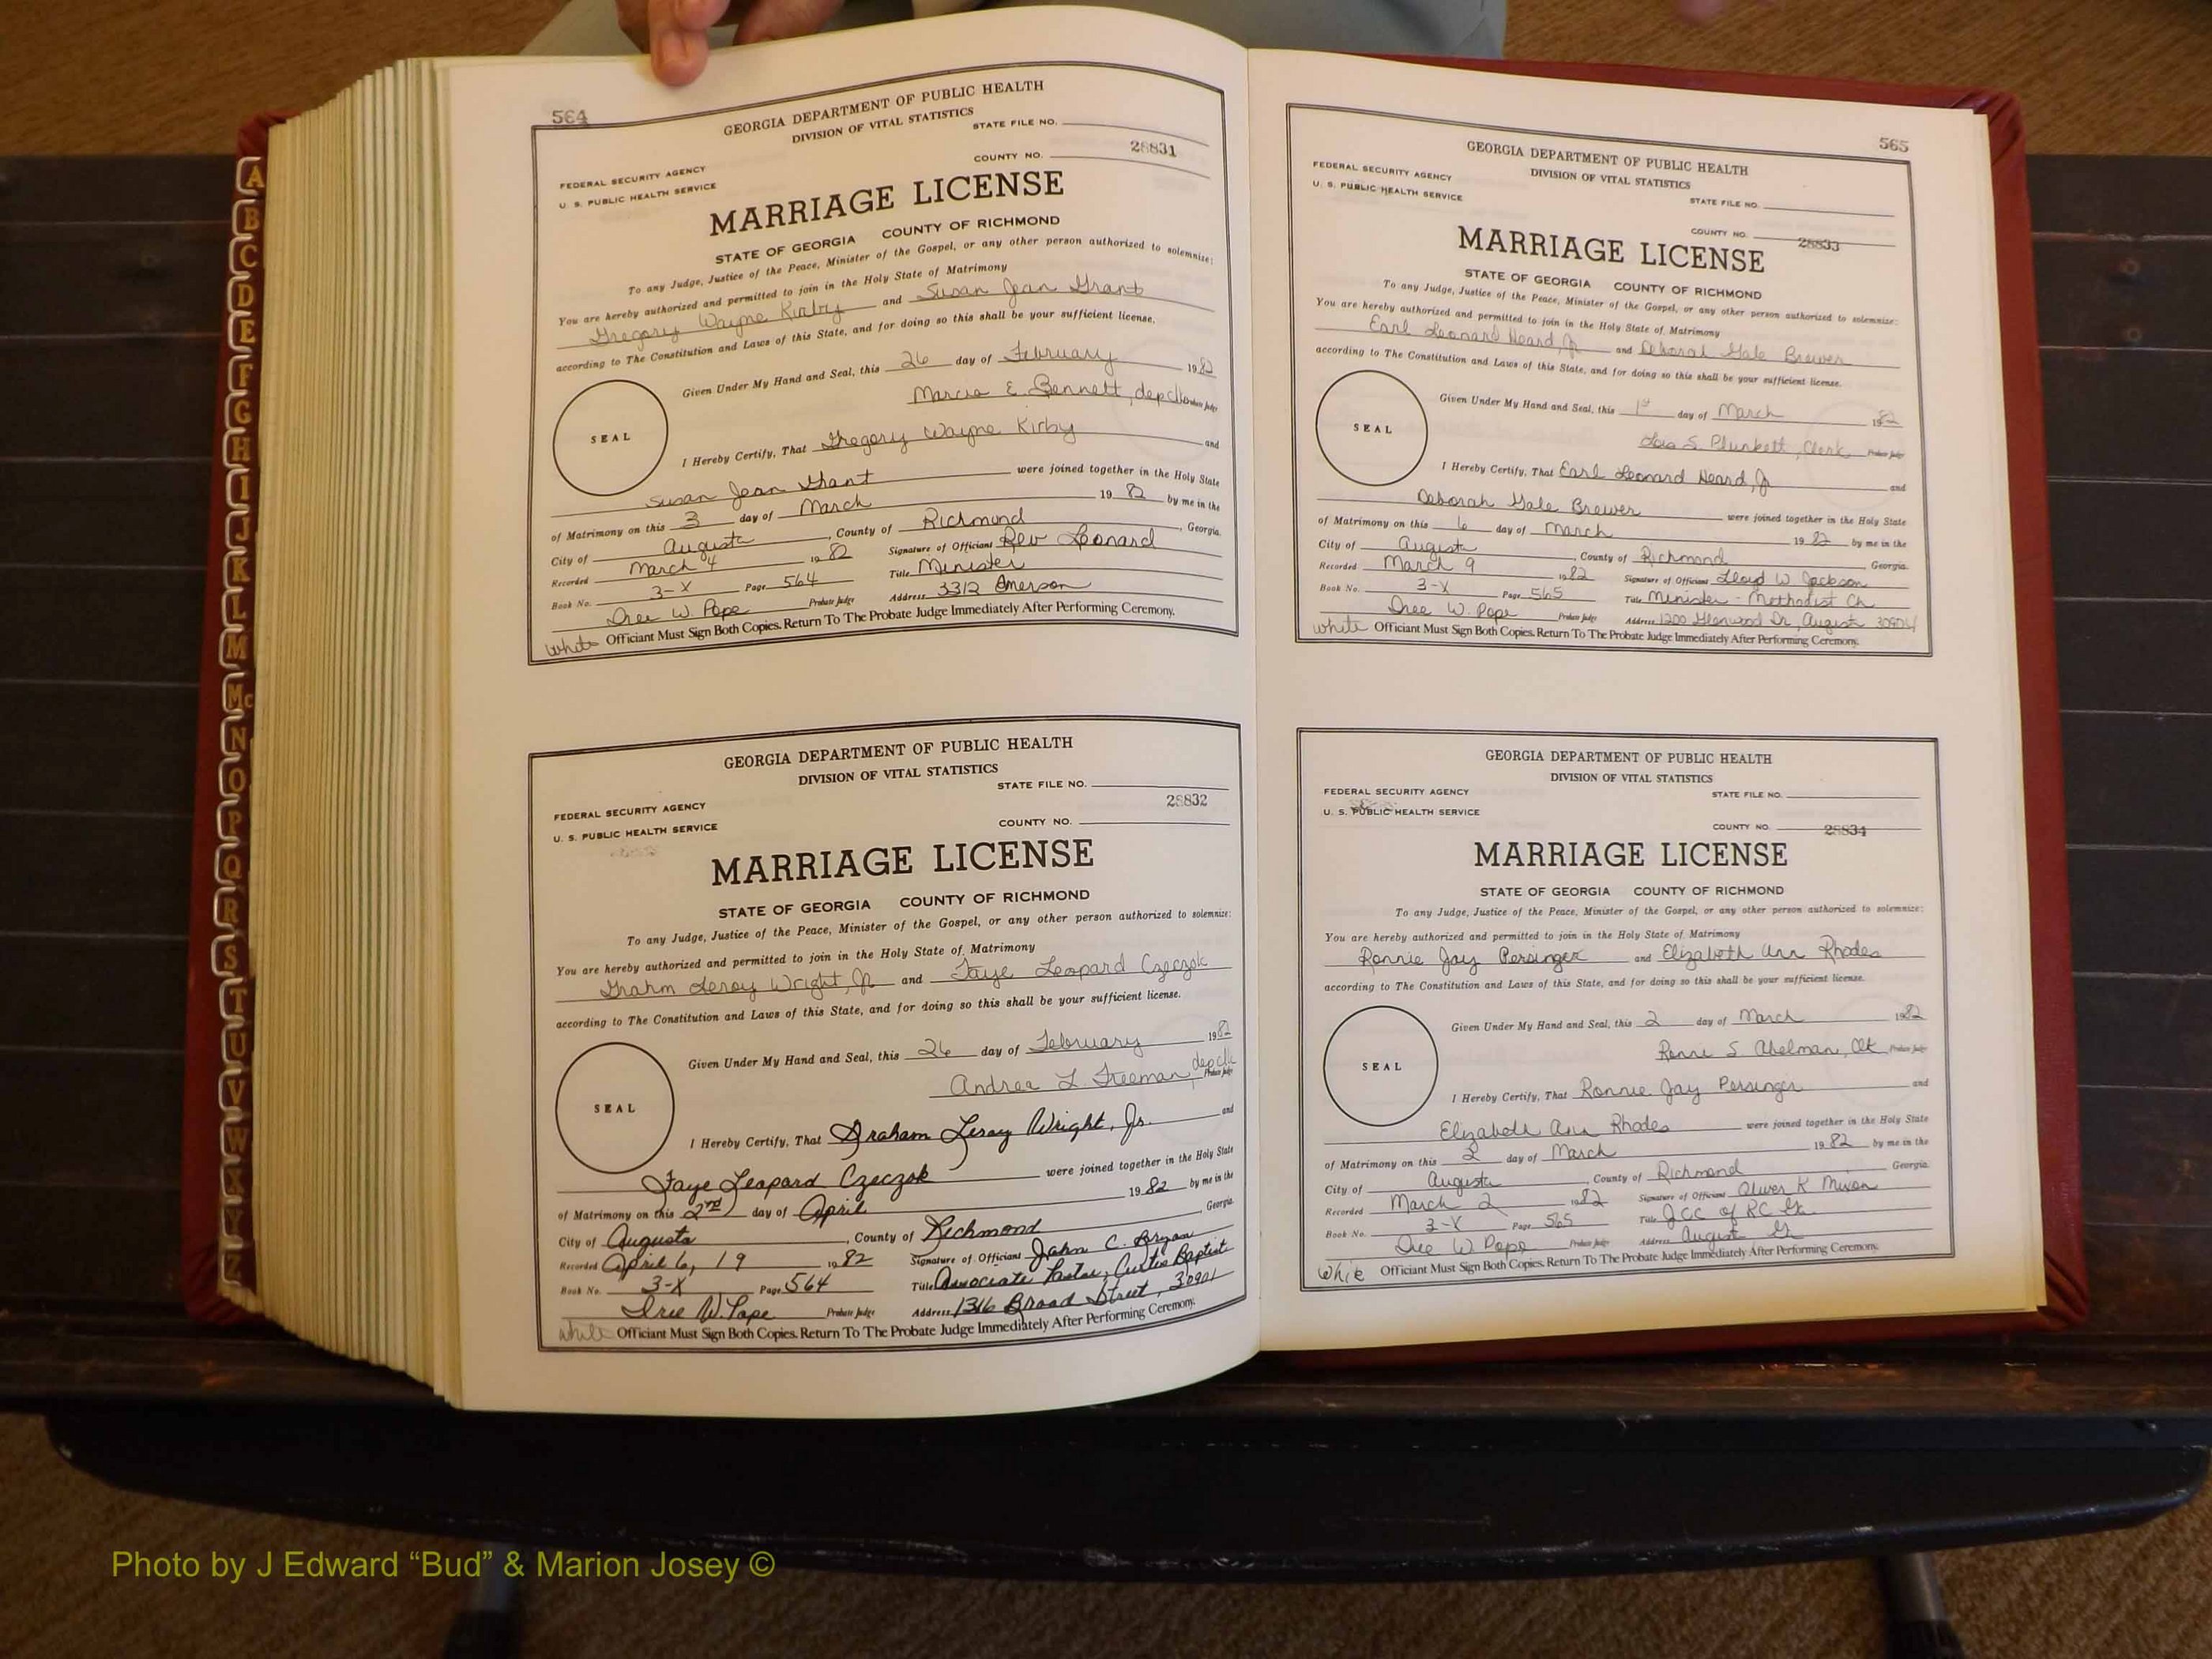 A
B
C
D
E
F
G
H
I
J
K
L
M
Mc
N
O
P
Q
R
S
T
U
V
W
X
Y
Z
564
GEORGIA DEPARTMENT OF PUBLIC HEALTH
DIVISION OF VITAL STATISTICS
STATE FILE NO.
28831
COUNTY NO.
FEDERAL SECURITY AGENCY
U. S. PUBLIC HEALTH SERVICE
MARRIAGE LICENSE
STATE OF GEORGIA COUNTY OF RICHMOND
To any Judge, Justice of the Peace, Minister of the Gospel, or any other person authorized to solemnize:
You are hereby authorized and permitted to join in the Holy State of Matrimony
Gregory Wayne Kirby and Susan Jean Grant
according to The Constitution and Laws of this State, and for doing so this shall be your sufficient license.
Given Under My Hand and Seal, this 26 day of February 1982
Marcia E. Bennett, dep clk Probate Judge
SEAL
I Hereby Certify, That Gregory Wayne Kirby and
Susan Jean Grant were joined together in the Holy State
of Matrimony on this 3 day of March 19 82 by me in the
City of Augusta, County of Richmond, Georgia.
Recorded March 4 1982 Signature of Officiant Rev Leonard
Book No. 3-X Page 564 Title Minister
Dree W. Pope Probate Judge Address 3312 Emerson
White Officiant Must Sign Both Copies. Return To The Probate Judge Immediately After Performing Ceremony.
GEORGIA DEPARTMENT OF PUBLIC HEALTH
DIVISION OF VITAL STATISTICS
STATE FILE NO.
28832
COUNTY NO.
FEDERAL SECURITY AGENCY
U. S. PUBLIC HEALTH SERVICE
MARRIAGE LICENSE
STATE OF GEORGIA COUNTY OF RICHMOND
To any Judge, Justice of the Peace, Minister of the Gospel, or any other person authorized to solemnize:
You are hereby authorized and permitted to join in the Holy State of Matrimony
Grahm Leroy Wright, Jr and Faye Leopard Czeczok
according to The Constitution and Laws of this State, and for doing so this shall be your sufficient license.
Given Under My Hand and Seal, this 26 day of February 1982
Andrea L. Freeman, dep clk Probate Judge
SEAL
I Hereby Certify, That Graham Leroy Wright, Jr. and
Faye Leopard Czeczok were joined together in the Holy State
of Matrimony on this 2nd day of April 19 82 by me in the
City of Augusta, County of Richmond, Georgia.
Recorded April 6, 19 1982 Signature of Officiant John C. Bryan
Book No. 3-X Page 564 Title Associate Pastor, Curtis Baptist
Dree W. Pope Probate Judge Address 1316 Broad Street, 30901
white Officiant Must Sign Both Copies. Return To The Probate Judge Immediately After Performing Ceremony.
565
GEORGIA DEPARTMENT OF PUBLIC HEALTH
DIVISION OF VITAL STATISTICS
FEDERAL SECURITY AGENCY
U. S. PUBLIC HEALTH SERVICE
STATE FILE NO.
COUNTY NO. 28833
MARRIAGE LICENSE
STATE OF GEORGIA COUNTY OF RICHMOND
To any Judge, Justice of the Peace, Minister of the Gospel, or any other person authorized to solemnize:
You are hereby authorized and permitted to join in the Holy State of Matrimony
Earl Leonard Heard, Jr and Deborah Gale Brewer
according to The Constitution and Laws of this State, and for doing so this shall be your sufficient license.
Given Under My Hand and Seal, this 1st day of March 1982
Lois S. Plunkett, Clerk Probate Judge
SEAL
I Hereby Certify, That Earl Leonard Heard, Jr and
Deborah Gale Brewer were joined together in the Holy State
of Matrimony on this 6 day of March 19 82 by me in the
City of Augusta, County of Richmond, Georgia.
Recorded March 9 1982 Signature of Officiant Lloyd W. Jackson
Book No. 3-X Page 565 Title Minister - Methodist Ch
Dree W. Pope Probate Judge Address 1200 Glenwood Dr, Augusta 30904
white Officiant Must Sign Both Copies. Return To The Probate Judge Immediately After Performing Ceremony.
GEORGIA DEPARTMENT OF PUBLIC HEALTH
DIVISION OF VITAL STATISTICS
FEDERAL SECURITY AGENCY
U. S. PUBLIC HEALTH SERVICE
STATE FILE NO.
COUNTY NO. 28834
MARRIAGE LICENSE
STATE OF GEORGIA COUNTY OF RICHMOND
To any Judge, Justice of the Peace, Minister of the Gospel, or any other person authorized to solemnize:
You are hereby authorized and permitted to join in the Holy State of Matrimony
Ronnie Jay Persinger and Elizabeth Ann Rhodes
according to The Constitution and Laws of this State, and for doing so this shall be your sufficient license.
Given Under My Hand and Seal, this 2 day of March 1982
Renni S. Abelman, Clk Probate Judge
SEAL
I Hereby Certify, That Ronnie Jay Persinger and
Elizabeth Ann Rhodes were joined together in the Holy State
of Matrimony on this 2 day of March 19 82 by me in the
City of Augusta, County of Richmond, Georgia.
Recorded March 2 1982 Signature of Officiant Oliver K Mixon
Book No. 3-X Page 565 Title JCC of RC Ga
Dree W. Pope Probate Judge Address August Ga
White Officiant Must Sign Both Copies. Return To The Probate Judge Immediately After Performing Ceremony.
Photo by J Edward “Bud” & Marion Josey ©